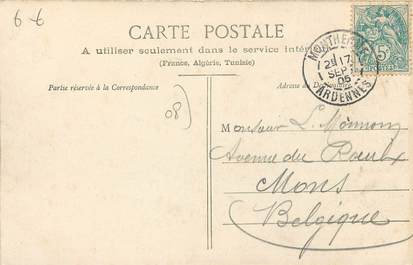 6-6
CARTE POSTALE
A utiliser seulement dans le service intérieur
(France, Algérie, Tunisie)
Partie réservée à la Correspondance
Adresse du
MONTHERMÉ
2E 17
1 SEPT
05
ARDENNES
5c
08)
Monsieur L.
Avenue du Rœulx
Mons
Belgique